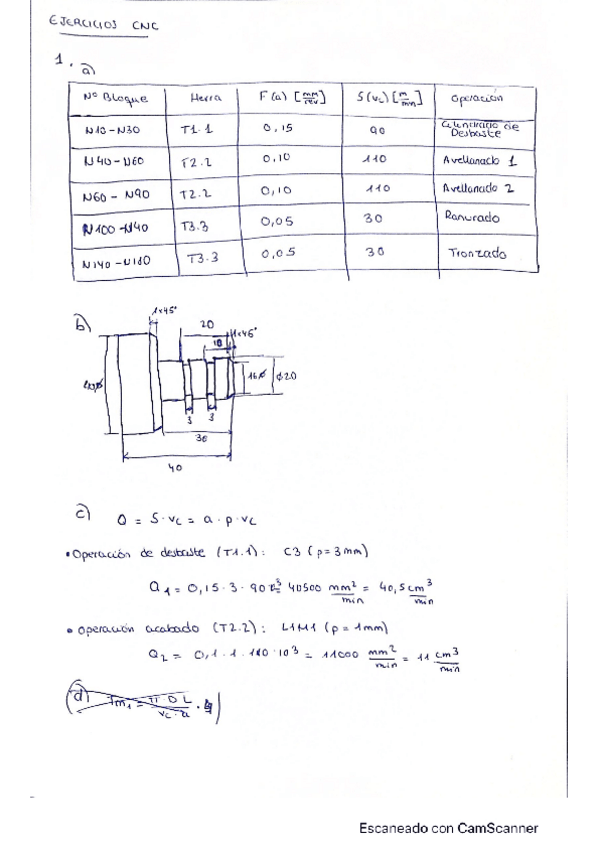 EJERCICIOS CNC
1. a)
Nº Bloque Herra F(a) [mm/rev] S(vc) [m/min] Operación
N10-N30 T1.1 0,15 90 Cilindrado de Desbaste
N40-N60 T2.2 0,10 110 Avellanado 1
N60 - N90 T2.2 0,10 110 Avellanado 2
N100-N40 T3.3 0,05 30 Ranurado
N140-N180 T3.3 0,05 30 Tronzado
b)
1x45°
20
1x45°
10
16ϕ
ϕ20
3 3
30
40
c) Q = S·vc = a·p·vc
•Operación de desbaste (T1.1): C3 (p=3mm)
Q1 = 0,15·3·90 = 40500 mm²/min = 40,5 cm³/min
• Operación acabado (T2.2): L1M1 (p=1mm)
Q2 = 0,1·1·110·10³ = 11000 mm²/min = 11 cm³/min
d) Tm1 = π·D·L/vc·a
Escaneado con CamScanner